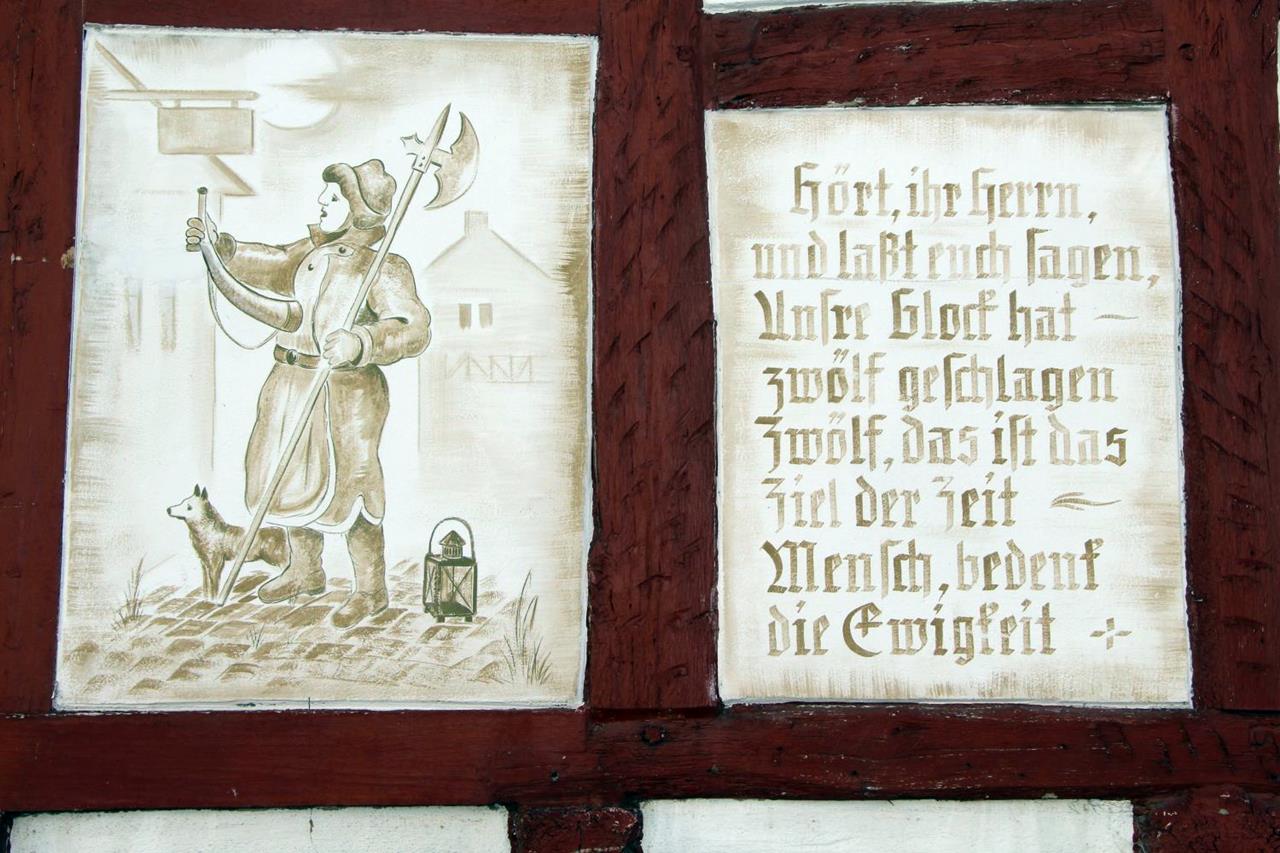 Hört, ihr Herrn,
und laßt euch sagen,
Unsre Glock hat
zwölf geschlagen
Zwölf, das ist das
Ziel der Zeit
Mensch, bedenk
die Ewigkeit